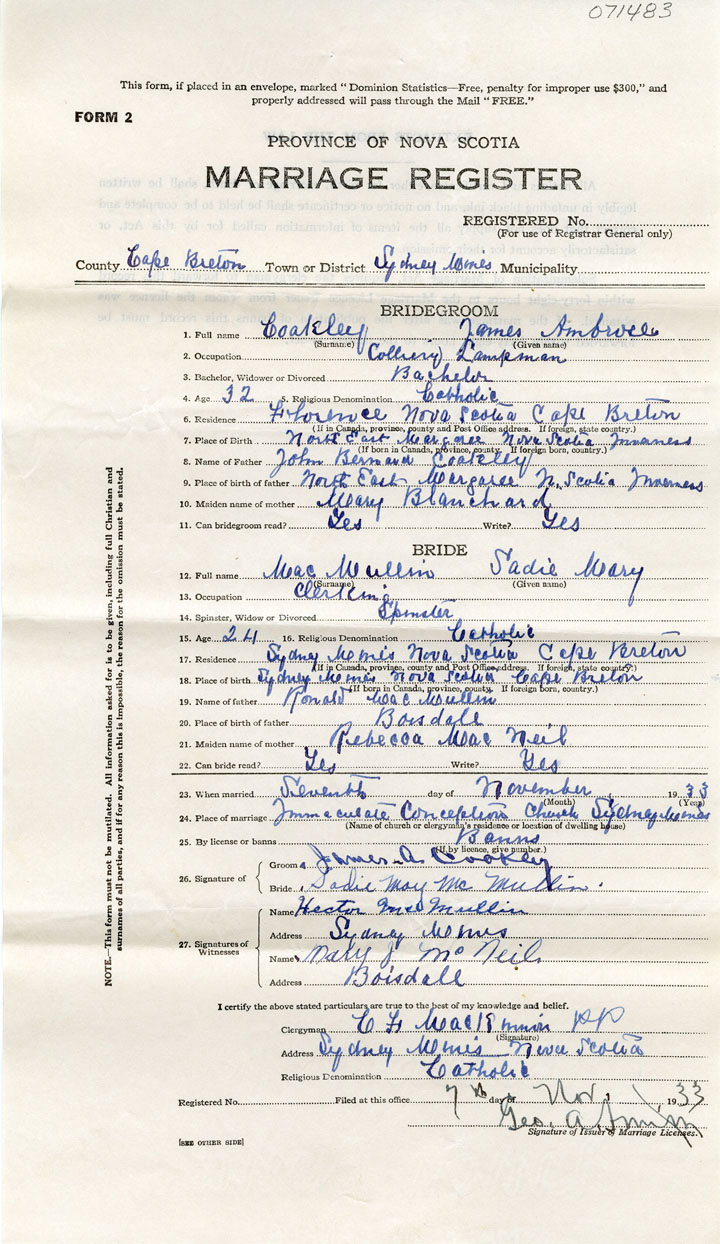 071483
This form, if placed in an envelope, marked "Dominion Statistics—Free, penalty for improper use $300," and
properly addressed will pass through the Mail "FREE."
FORM 2
PROVINCE OF NOVA SCOTIA
MARRIAGE REGISTER
REGISTERED No.
(For use of Registrar General only)
County Cape Breton Town or District Sydney Mines Municipality
BRIDEGROOM
1. Full name Coakeley James Ambrose
(Surname) (Given name)
2. Occupation Colliery Lampman
3. Bachelor, Widower or Divorced Bachelor
4. Age 32 5. Religious Denomination Catholic
6. Residence Florence Nova Scotia Cape Breton
(If in Canada, province, county and Post Office address. If foreign, state country.)
7. Place of Birth North East Margaree Nova Scotia Inverness
(If born in Canada, province, county. If foreign born, country.)
8. Name of Father John Bernard Coakeley
9. Place of birth of father North East Margaree N. Scotia Inverness
10. Maiden name of mother Mary Blanchard
11. Can bridegroom read? Yes Write? Yes
BRIDE
12. Full name Mac Mullin Sadie Mary
(Surname) (Given name)
13. Occupation Clerking
14. Spinster, Widow or Divorced Spinster
15. Age 24 16. Religious Denomination Catholic
17. Residence Sydney Mines Nova Scotia Cape Breton
(If in Canada, province, county and Post Office address. If foreign, state country.)
18. Place of birth Sydney Mines Nova Scotia Cape Breton
(If born in Canada, province, county. If foreign born, country.)
19. Name of father Ronald Mac Mullin
20. Place of birth of father Boisdall
21. Maiden name of mother Rebecca Mac Neil
22. Can bride read? Yes Write? Yes
23. When married Seventh day of November 1933
(Month) (Year)
24. Place of marriage Immaculate Conception Church Sydney Mines
(Name of church or clergyman's residence or location of dwelling house)
25. By license or banns Banns
(If by licence, give number.)
26. Signature of Groom James A. Coakley
Bride Sadie May Mc Mullin.
27. Signatures of Witnesses Name Hector Mc Mullin
Address Sydney Mines
Name Mary J McNeil
Address Boisdall
I certify the above stated particulars are true to the best of my knowledge and belief.
Clergyman C F MacKinnon PP
(Signature)
Address Sydney Mines Nova Scotia
Religious Denomination Catholic
Registered No. Filed at this office 7th day of Nov. 1933
Geo. A.
Signature of Issuer of Marriage Licenses.
[SEE OTHER SIDE]
NOTE.—This form must not be mutilated. All information asked for is to be given, including full Christian and
surnames of all parties, and if for any reason this is impossible, the reason for the omission must be stated.